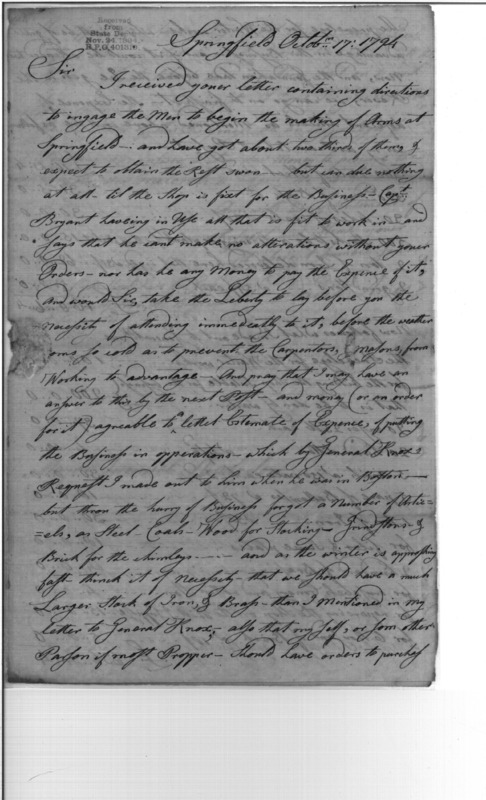 Received
from
State De
Nov. 24
R.P.G.
Springfield Octobr. 17: 1794
Sir
I received youer letter containing directions
to ingage the Men to begin the making of Arms at
Springfield — and have got about two thirds of them, &
expect to obtain the Rest soon — but can do nothing
at all til the Shop is fixt for the Business — Capt.
Bryant haveing in Use all that is fit to work in — and
says that he cant make no alterations without youer
Orders — nor has he any Money to pay the Expence of it,
and would Sir, take the Liberty to lay before you the
Necessity of attending immediatly to it, before the weather
coms so cold as to prevent the Carpentors, & Masons from
Working to advantage — And pray that I may have an
answer to this by the next Post — and money (or an order
for it) agreable to letter Estemate of Expence, of putting
the Business in opperations — which by General Knox's
Request I made out to him when he was in Boston —
but thron the hurry of Business forgot a Number of Artic=
=els, as Steel — Coals — Wood for Stocking — Grindstons — &
Brick for the chimleys — and as the winter is approching
fast think it of Necessety — that we should have a much
Larger Stock of Iron, & Brass — than I Mentioned in my
Letter to General Knox; also that my self, or som other
Parson if most Propper — Should have orders to purchas